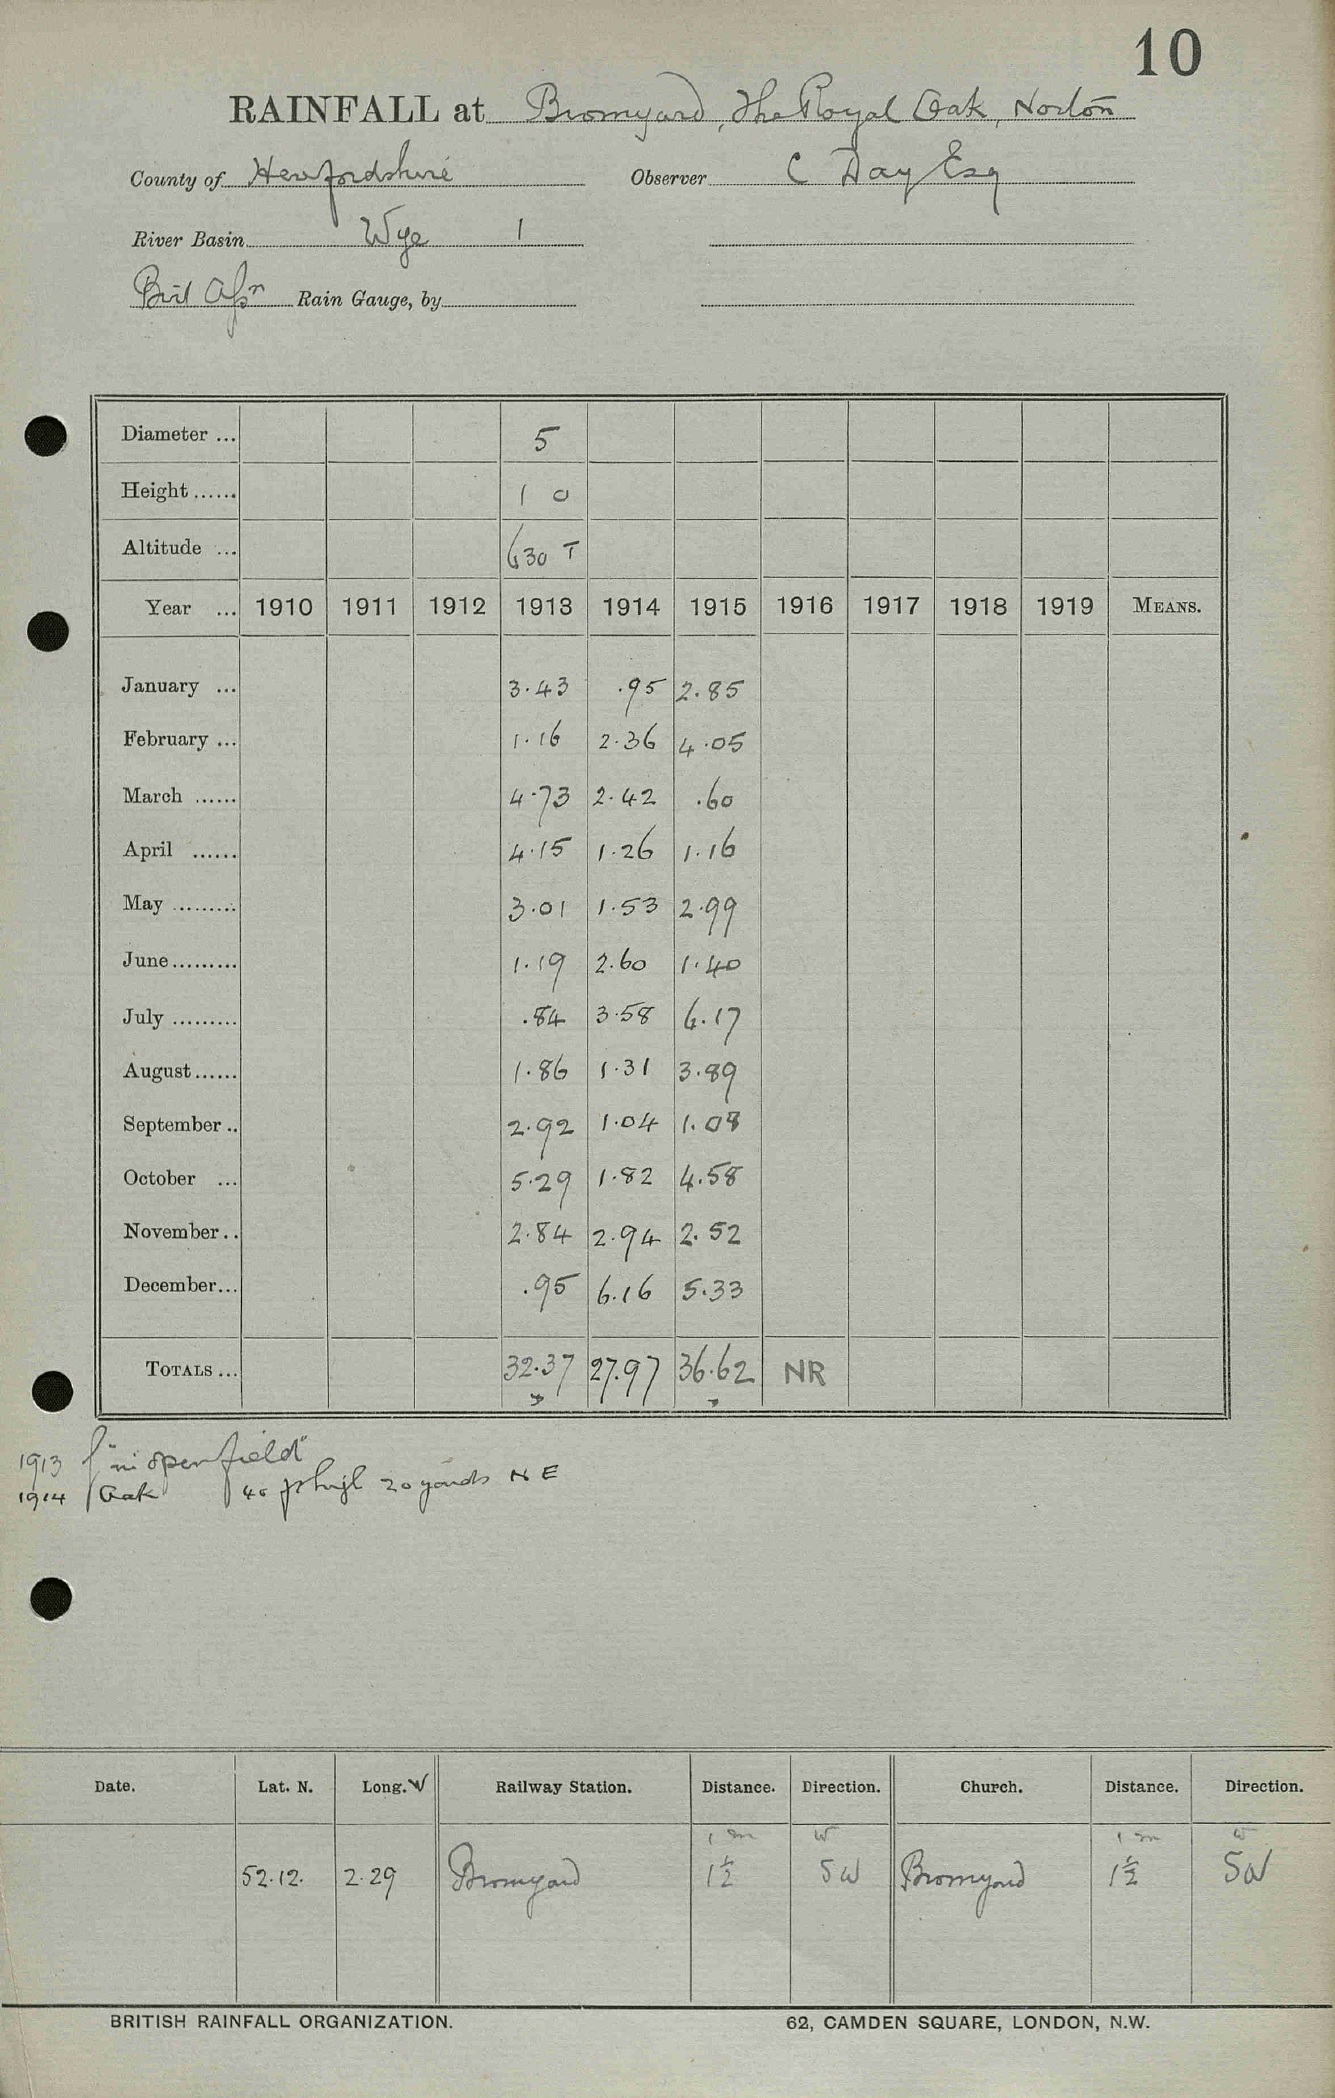 10
RAINFALL at Bromyard, The Royal Oak, Norton
County of Herefordshire Observer C Day Esq
River Basin Wye 1
Brit Assn Rain Gauge, by
Diameter ... 5
Height ...... 1 0
Altitude ... 630 T
Year ... 1910 1911 1912 1913 1914 1915 1916 1917 1918 1919 MEANS.
January ... 3.43 .95 2.85
February ... 1.16 2.36 4.05
March ...... 4.73 2.42 .60
April ...... 4.15 1.26 1.16
May ......... 3.01 1.53 2.99
June ......... 1.19 2.60 1.40
July ......... .84 3.58 6.17
August ...... 1.86 1.31 3.89
September .. 2.92 1.04 1.08
October ... 5.29 1.82 4.58
November .. 2.84 2.94 2.52
December ... .95 6.16 5.33
TOTALS ... 32.37 27.97 36.62 NR
1913 "in open field"
1914 Oak 40 ft high 20 yards N E
Date. Lat. N. Long. W Railway Station. Distance. Direction. Church. Distance. Direction.
1 m W 1 m W
52.12. 2.29 Bromyard 1½ SW Bromyard 1½ SW
BRITISH RAINFALL ORGANIZATION. 62, CAMDEN SQUARE, LONDON, N.W.